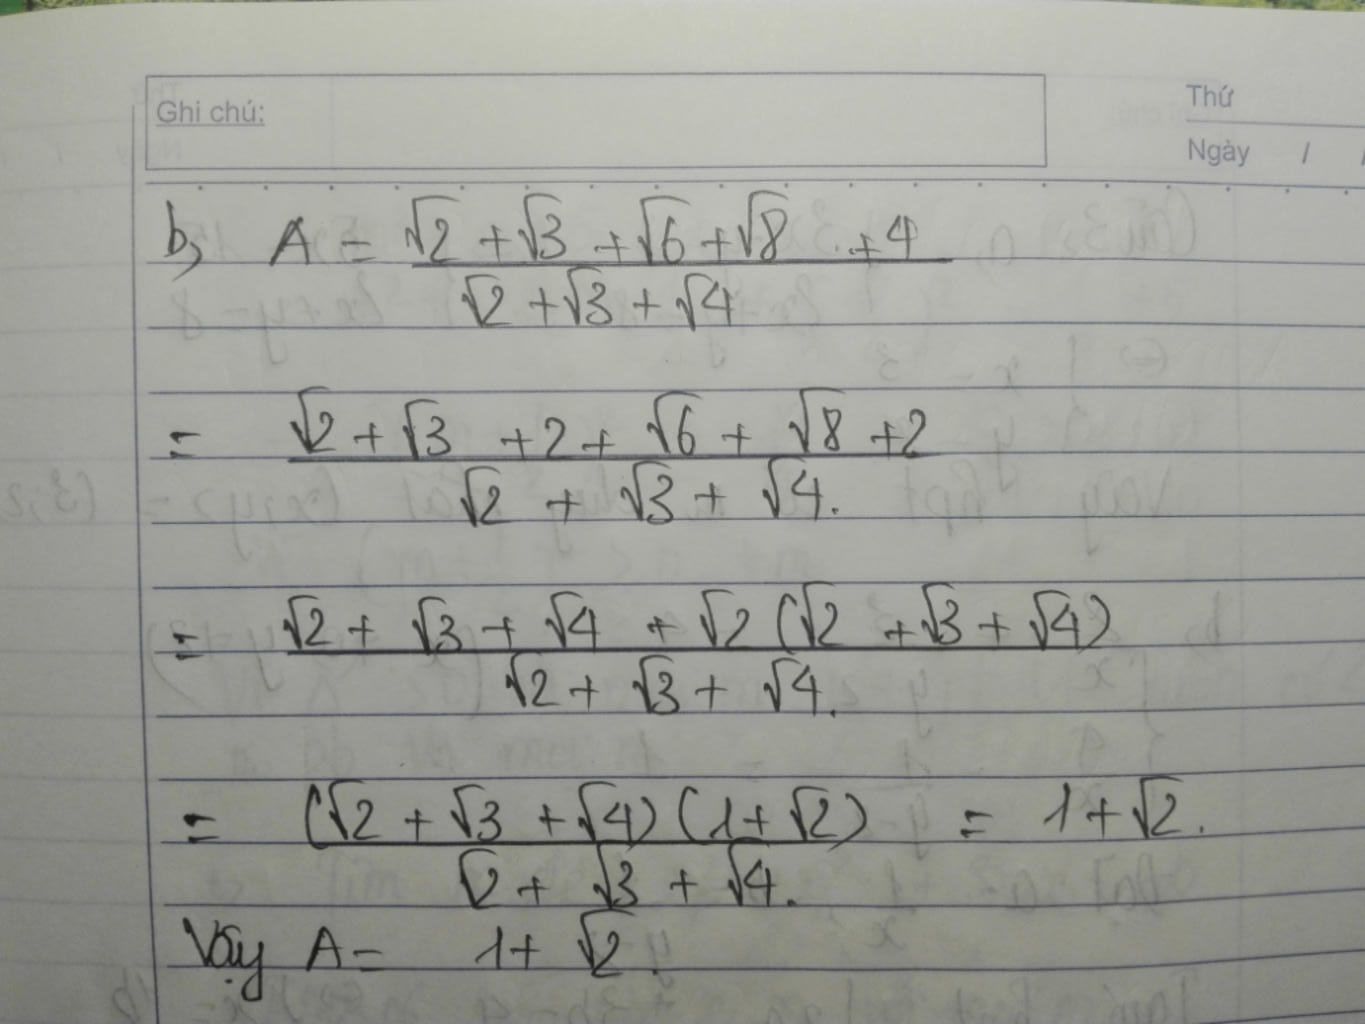 Ghi chú:
Thứ
Ngày / /
b, A = (√2 + √3 + √6 + √8 + 4) / (√2 + √3 + √4)
= (√2 + √3 + 2 + √6 + √8 + 2) / (√2 + √3 + √4.)
= (√2 + √3 + √4 + √2 (√2 + √3 + √4)) / (√2 + √3 + √4.)
= ((√2 + √3 + √4) (1 + √2)) / (√2 + √3 + √4.) = 1 + √2.
Vậy A = 1 + √2.